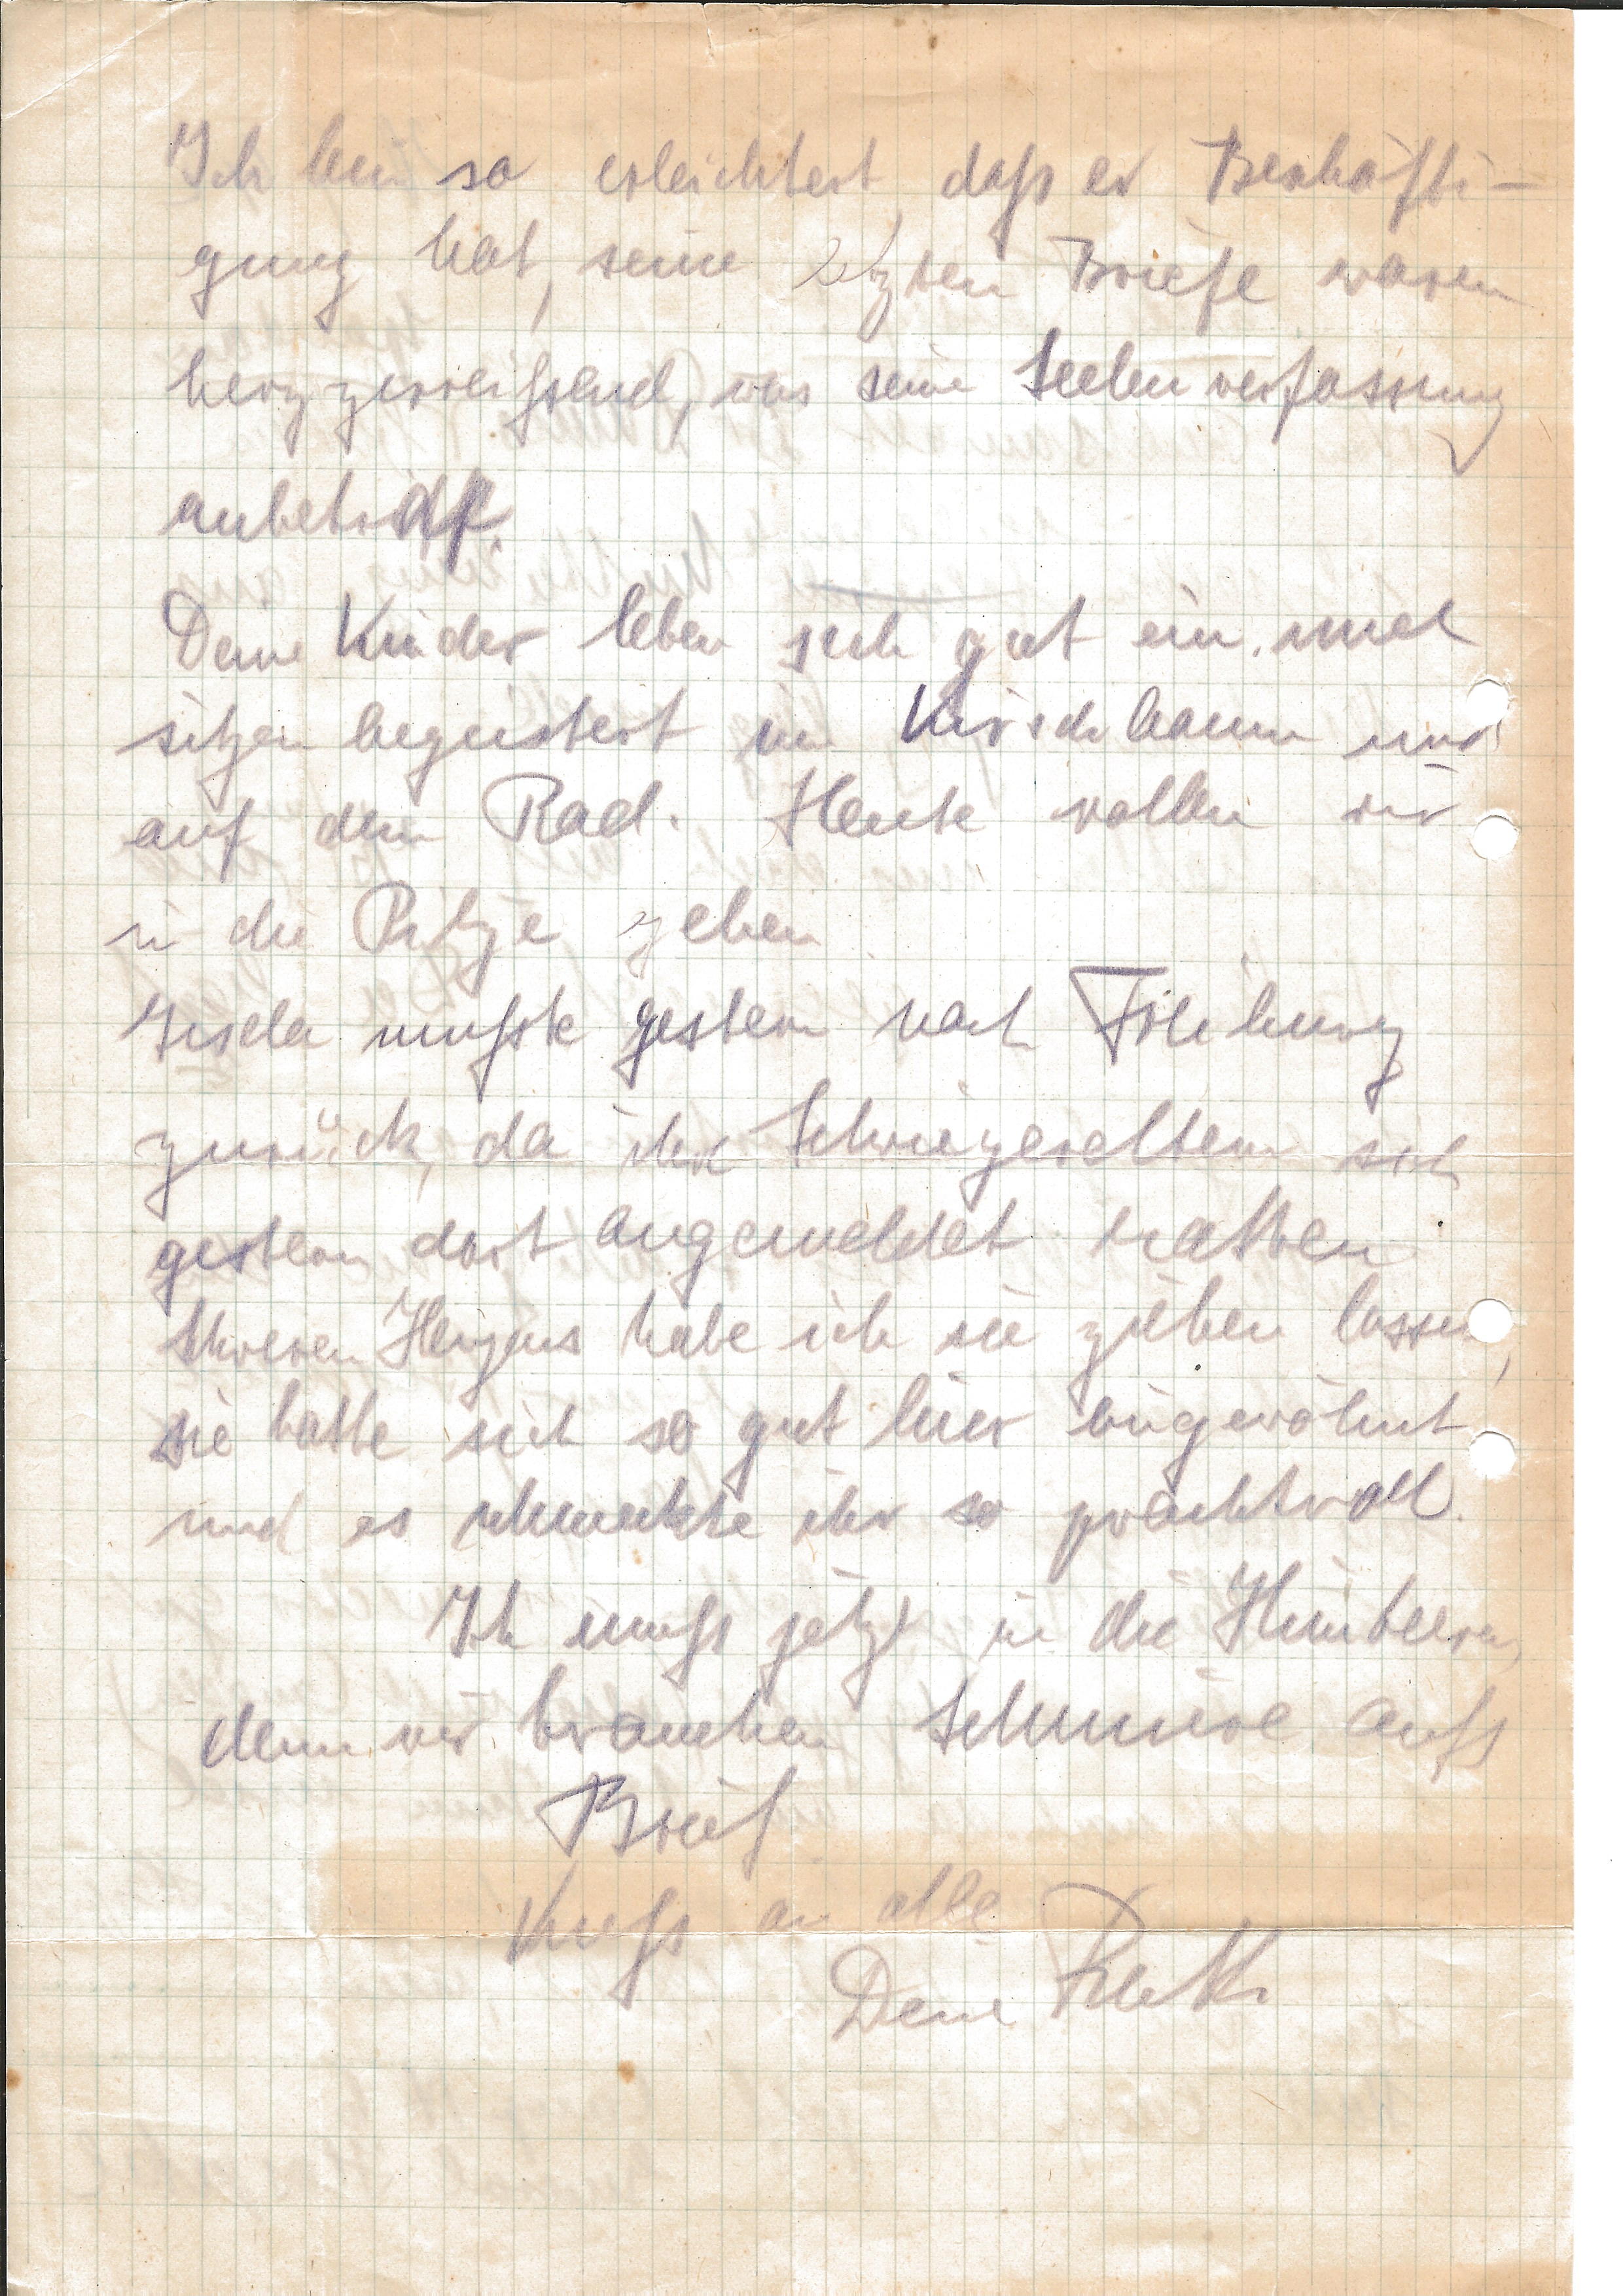 Ich bin so erleichtert, daß er Beschäfti-
gung hat, seine letzten Briefe waren
herzzerreißend, was seine Seelenverfassung
anbetraf.
Deine Kinder leben sich gut ein und
sitzen begeistert im Kirschbaum und
auf dem Rad. Heute wollen wir
in die Pilze gehen
Gisela mußte gestern nach Freiburg
zurück, da ihre Schwiegereltern sich
gestern dort angemeldet hatten
Schweren Herzens habe ich sie ziehen lassen,
sie hatte sich so gut hier eingewöhnt
und es schmeckte ihr so prachtvoll.
Ich muß jetzt in die Himbeeren,
denn wir brauchen Schmiere aufs
Brot
Kuß an alle
Deine Ruth